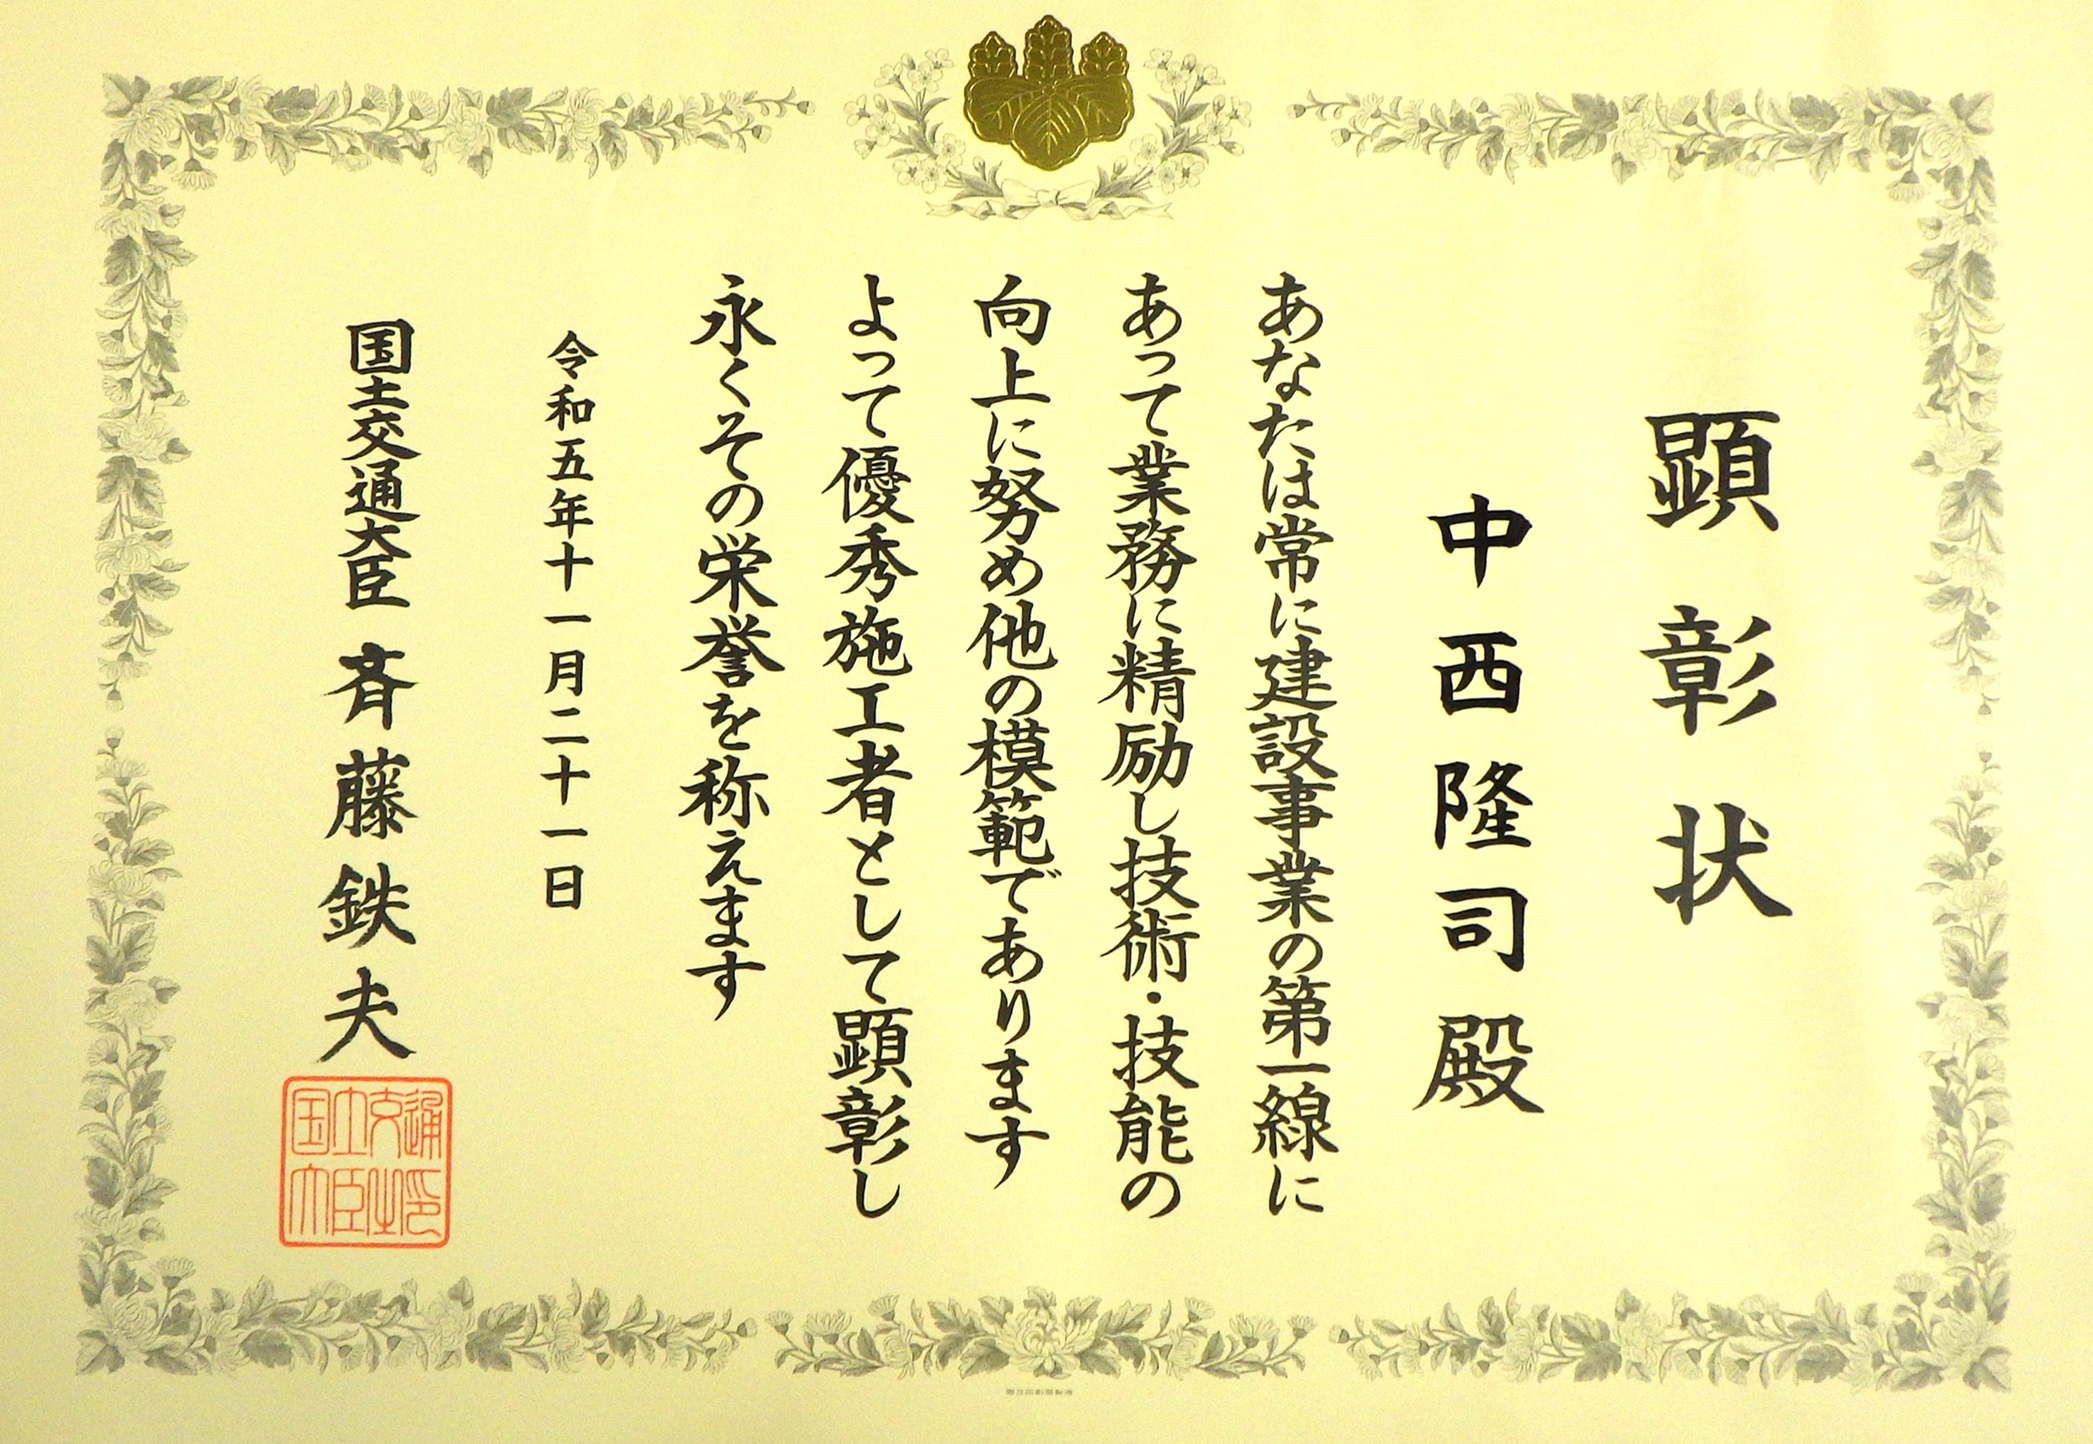 顕彰状
中西隆司殿
あなたは常に建設事業の第一線に
あって業務に精励し技術・技能の
向上に努め他の模範であります
よって優秀施工者として顕彰し
永くその栄誉を称えます
令和五年十一月二十一日
国土交通大臣 斉藤鉄夫
国土交通大臣之印